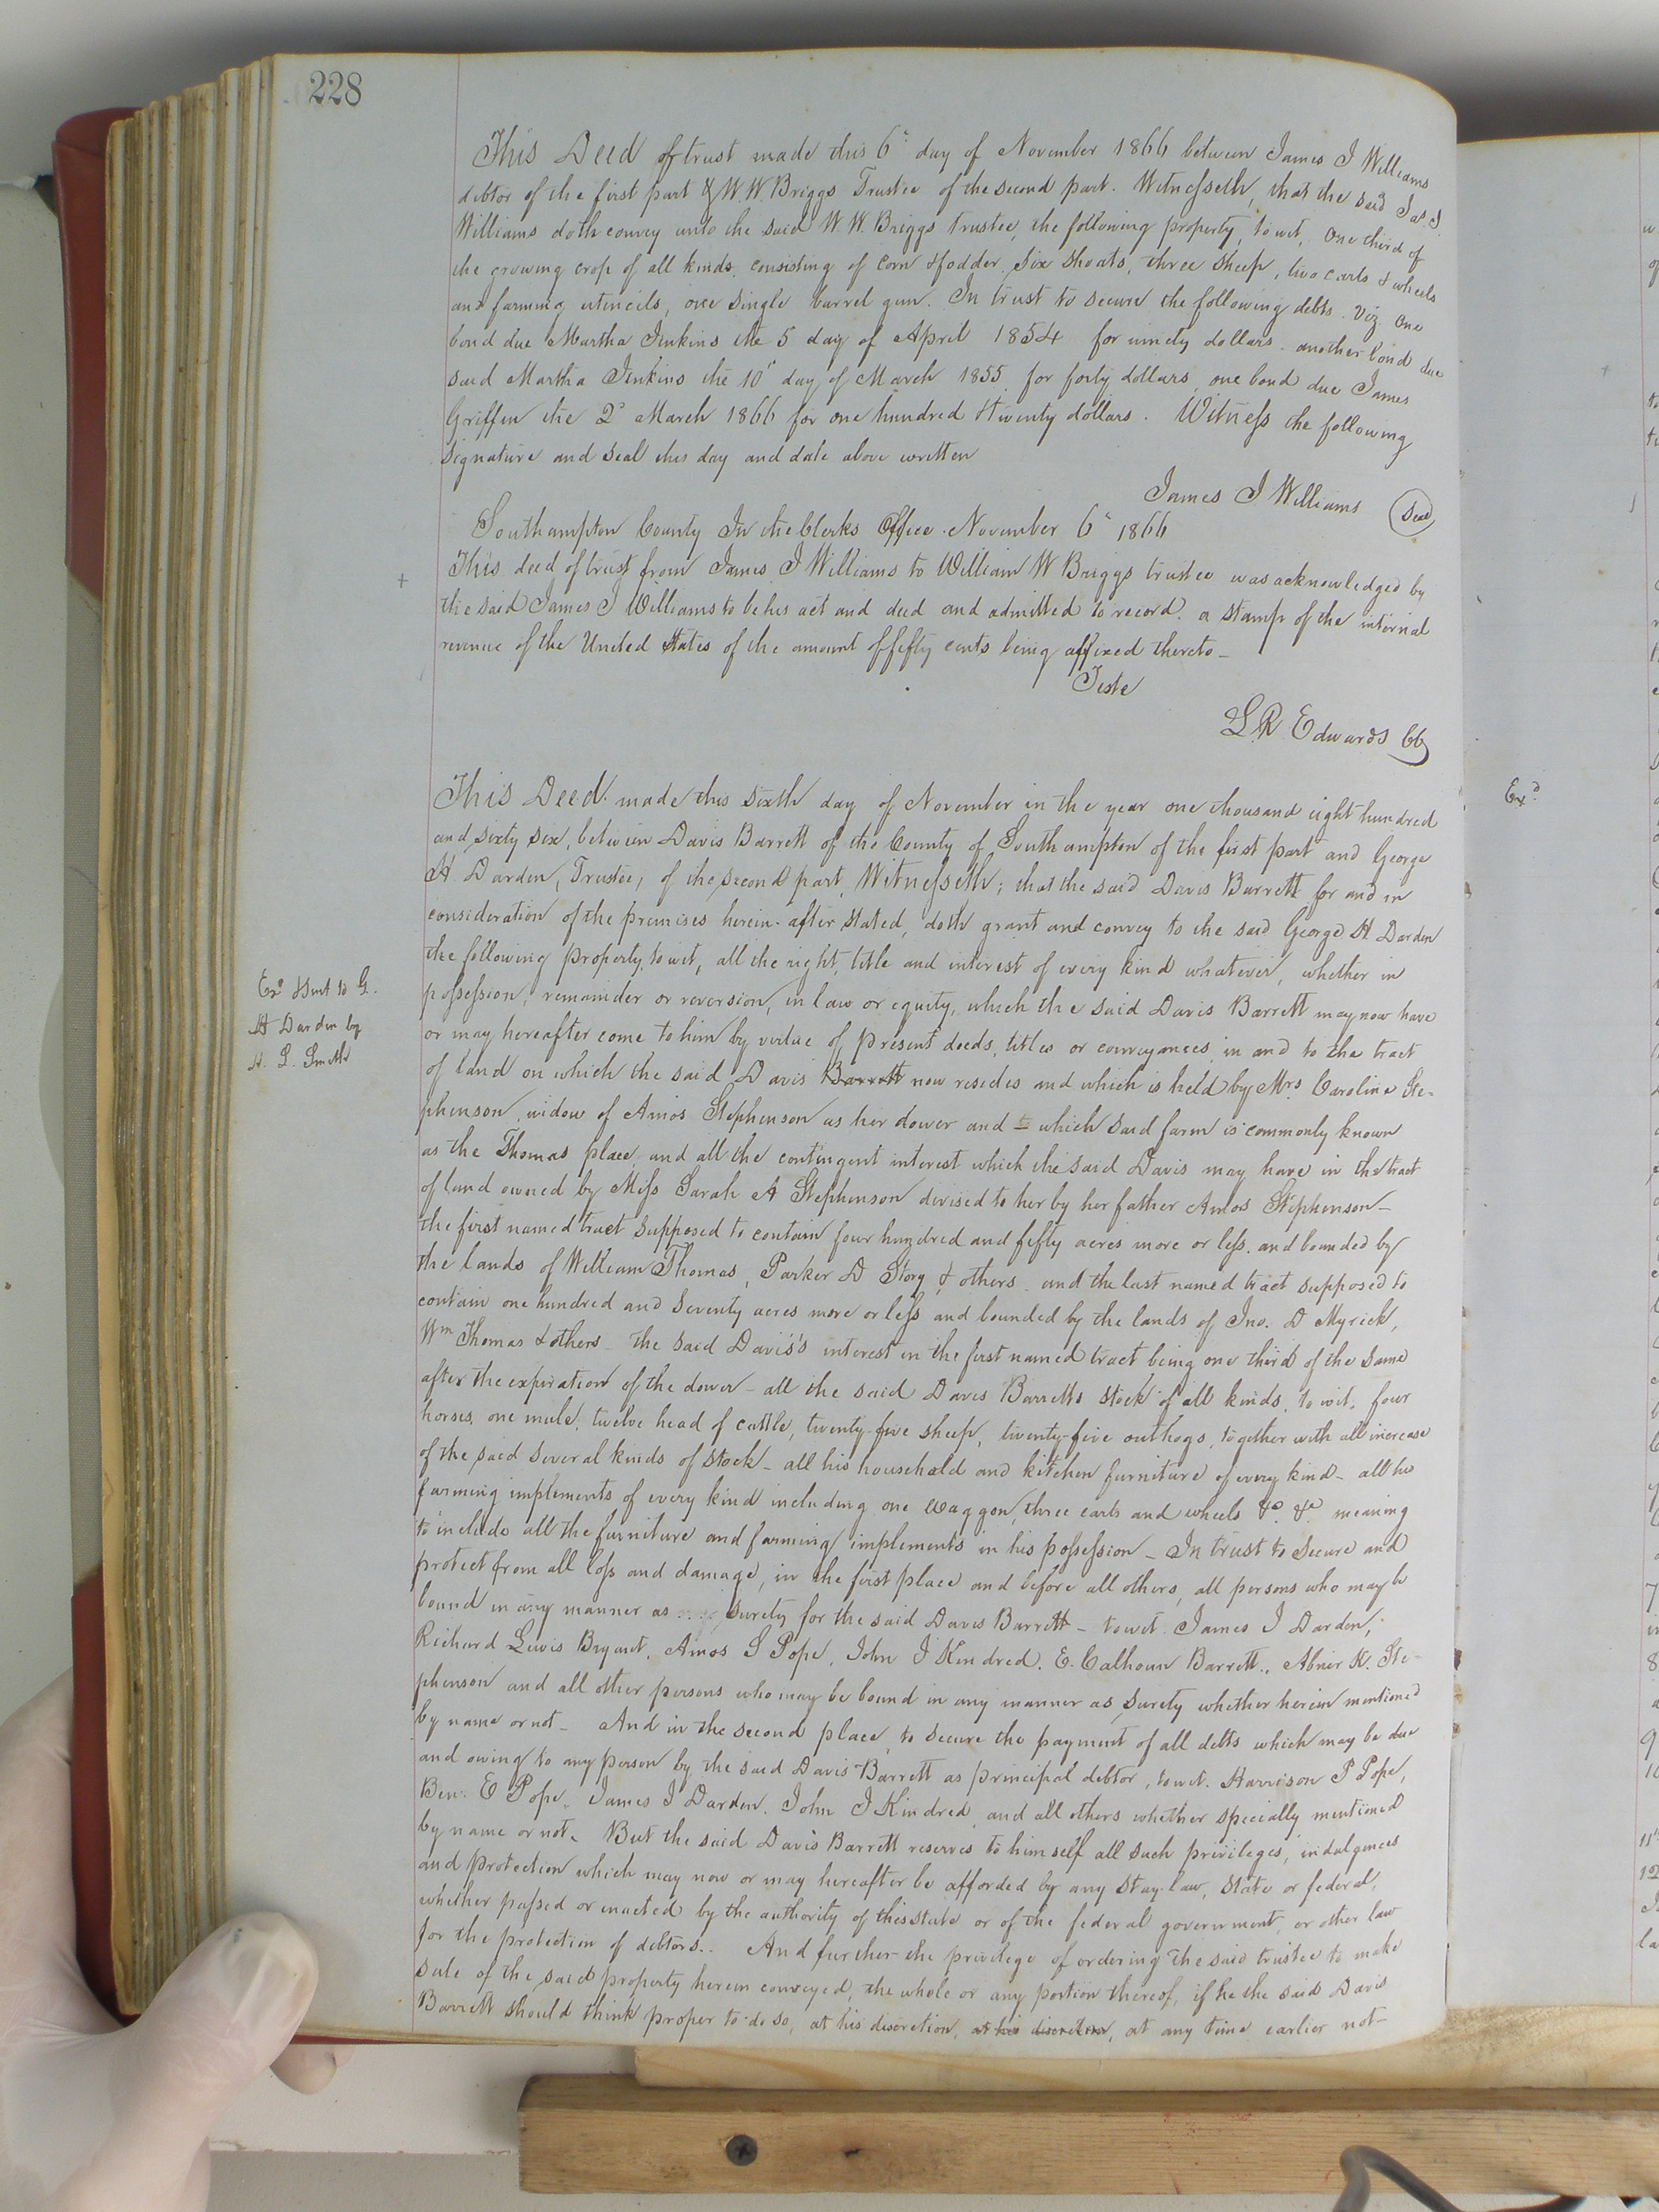 228
This Deed of trust made this 6" day of November 1866 between James J Williams
debtor of the first part & W. W. Briggs Trustee of the second part. Witnesseth, that the said Jas. J.
Williams doth convey unto the said W. W. Briggs trustee, the following property, to wit, One third of
the growing crop of all kinds, consisting of corn & fodder. Six shoats, three sheep, two carts & wheels
and farming utencils, one single barrel gun. In trust to secure the following debts. Viz. One
bond due Martha Jenkins the 5 day of April 1854 for ninety dollars. another bond due
said Martha Jenkins the 10" day of March 1855. for forty dollars, one bond due James
Griffin the 2" March 1866 for one hundred & twenty dollars. Witness the following
signature and seal this day and date above written
James J Williams (Seal)
Southampton County In the Clerks Office November 6" 1866
This deed of trust from James J Williams to William W Briggs trustee was acknowledged by
the said James J Williams to be his act and deed and admitted to record. a stamp of the internal
revenue of the United States of the amount of fifty cents being affixed thereto_
Teste
L R Edwards CC
This Deed made this sixth day of November in the year one thousand eight hundred
and sixty six, between Davis Barrett of the County of Southampton of the first part and George
H. Darden, Trustee, of the second part, Witnesseth; that the said Davis Barrett for and in
consideration of the premises herein-after stated, doth grant and convey to the said George H Darden
the following property, to wit, all the right, title and interest of every kind whatever, whether in
possession, remainder or reversion, in law or equity, which the said Davis Barrett may now have
or may hereafter come to him by virtue of present deeds, titles or conveyances in and to the tract
of land on which the said Davis Barrett now resides and which is held by Mrs. Caroline Ste-
phenson, widow of Amos Stephenson as her dower and to which said farm is commonly known
as the Thomas place, and all the contingent interest which the said Davis may have in the tract
of land owned by Miss Sarah A Stephenson devised to her by her father Amos Stephenson_
the first named tract supposed to contain four hundred and fifty acres more or less, and bounded by
the lands of William Thomas, Parker D Story & others and the last named tract supposed to
contain one hundred and seventy acres more or less and bounded by the lands of Jno. D Myrick,
Wm Thomas & others_ the said Davis's interest in the first named tract being one third of the same
after the expiration of the dower_ all the said Davis Barretts stock of all kinds, to wit, four
horses, one mule, twelve head of cattle, twenty-five sheep, twenty-five out hogs, together with all increase
of the said several kinds of stock_ all his household and kitchen furniture of every kind_ all his
farming implements of every kind including one waggon, three carts and wheels &c. &c meaning
to include all the furniture and farming implements in his possession_ In trust to secure and
protect from all loss and damage, in the first place and before all others, all persons who may be
bound in any manner as surety for the said Davis Barrett_ to wit. James J Darden,
Richard Lewis Bryant, Amos S Pope, John J Kindred, E. Calhoun Barrett., Abner K. Ste-
phenson and all other persons who may be bound in any manner as surety whether herein mentioned
by name or not_ And in the second place, to secure the payment of all debts which may be due
and owing to any person by the said Davis Barrett as principal debtor, to wit. Harrison P Pope,
Ben: E Pope, James J Darden, John J Kindred, and all others whether specially mentioned
by name or not. But the said Davis Barrett reserves to himself all such privileges, indulgences
and protection which may now or may hereafter be afforded by any stay-law, State or federal,
whether passed or enacted by the authority of this state or of the federal government, or other law
for the protection of debtors.. And further the privilege of ordering the said trustee to make
sale of the said property herein conveyed, the whole or any portion thereof, if he the said Davis
Barrett should think proper to do so, at his discretion, at his discretion, at any time earlier not-
Exd. & sent to G.
H Darden by
L. Smith
Exd.